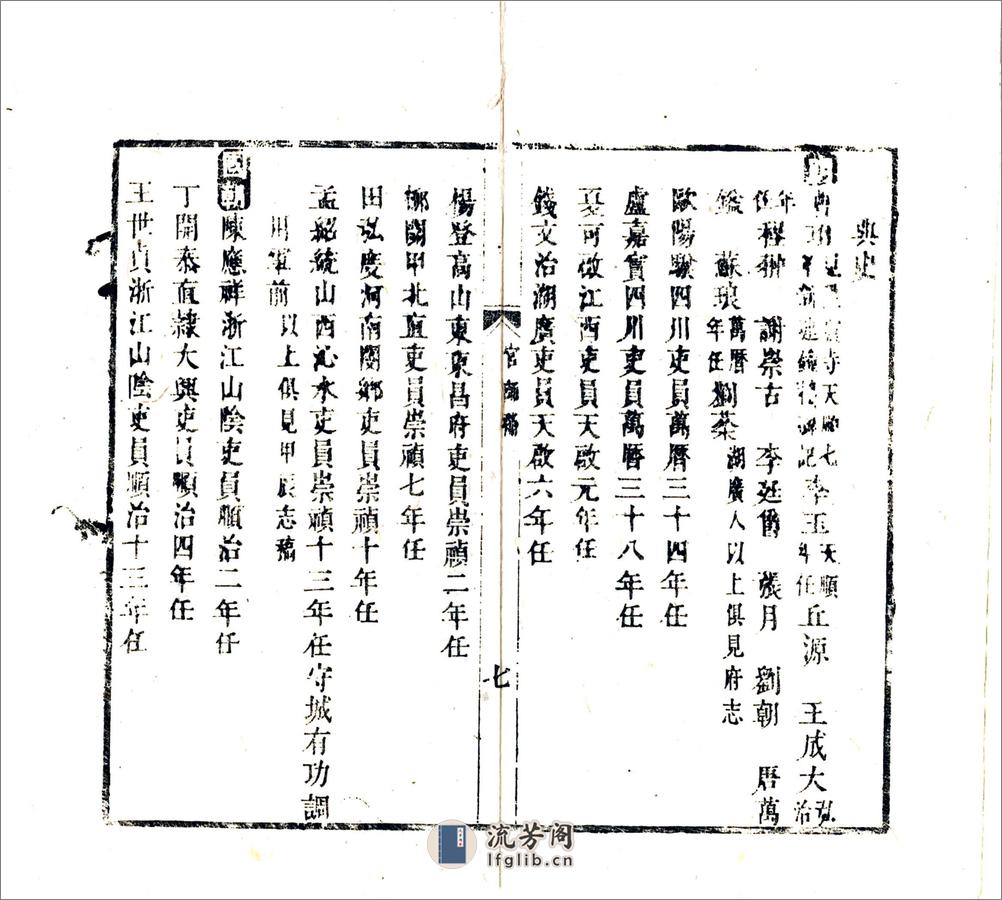 典史
寺天順七年 李玉天順年任 丘源 王成大弘治
年任 程翀 謝崇古 李廷 張月 劉朝 唐萬
鑑 蘇琅萬曆年任 劉葵湖廣人以上俱見府志
歐陽 四川吏員萬曆三十四年任
盧嘉賓四川吏員萬曆三十八年任
夏可啟江西吏員天啟元年任
錢文治湖廣吏員天啟六年任
官師
七
楊登高山東東昌府吏員崇禎二年任
甲北直吏員崇禎七年任
田弘慶河南閿鄉吏員崇禎十年任
孟紹統山西沁水吏員崇禎十三年任守城有功調
用軍前以上俱見甲辰志稿
國朝陳應祥浙江山陰吏員順治二年任
丁開泰直隸大興吏員順治四年任
王世貞浙江山陰吏員順治十三年任
流芳阁
lfglib.cn